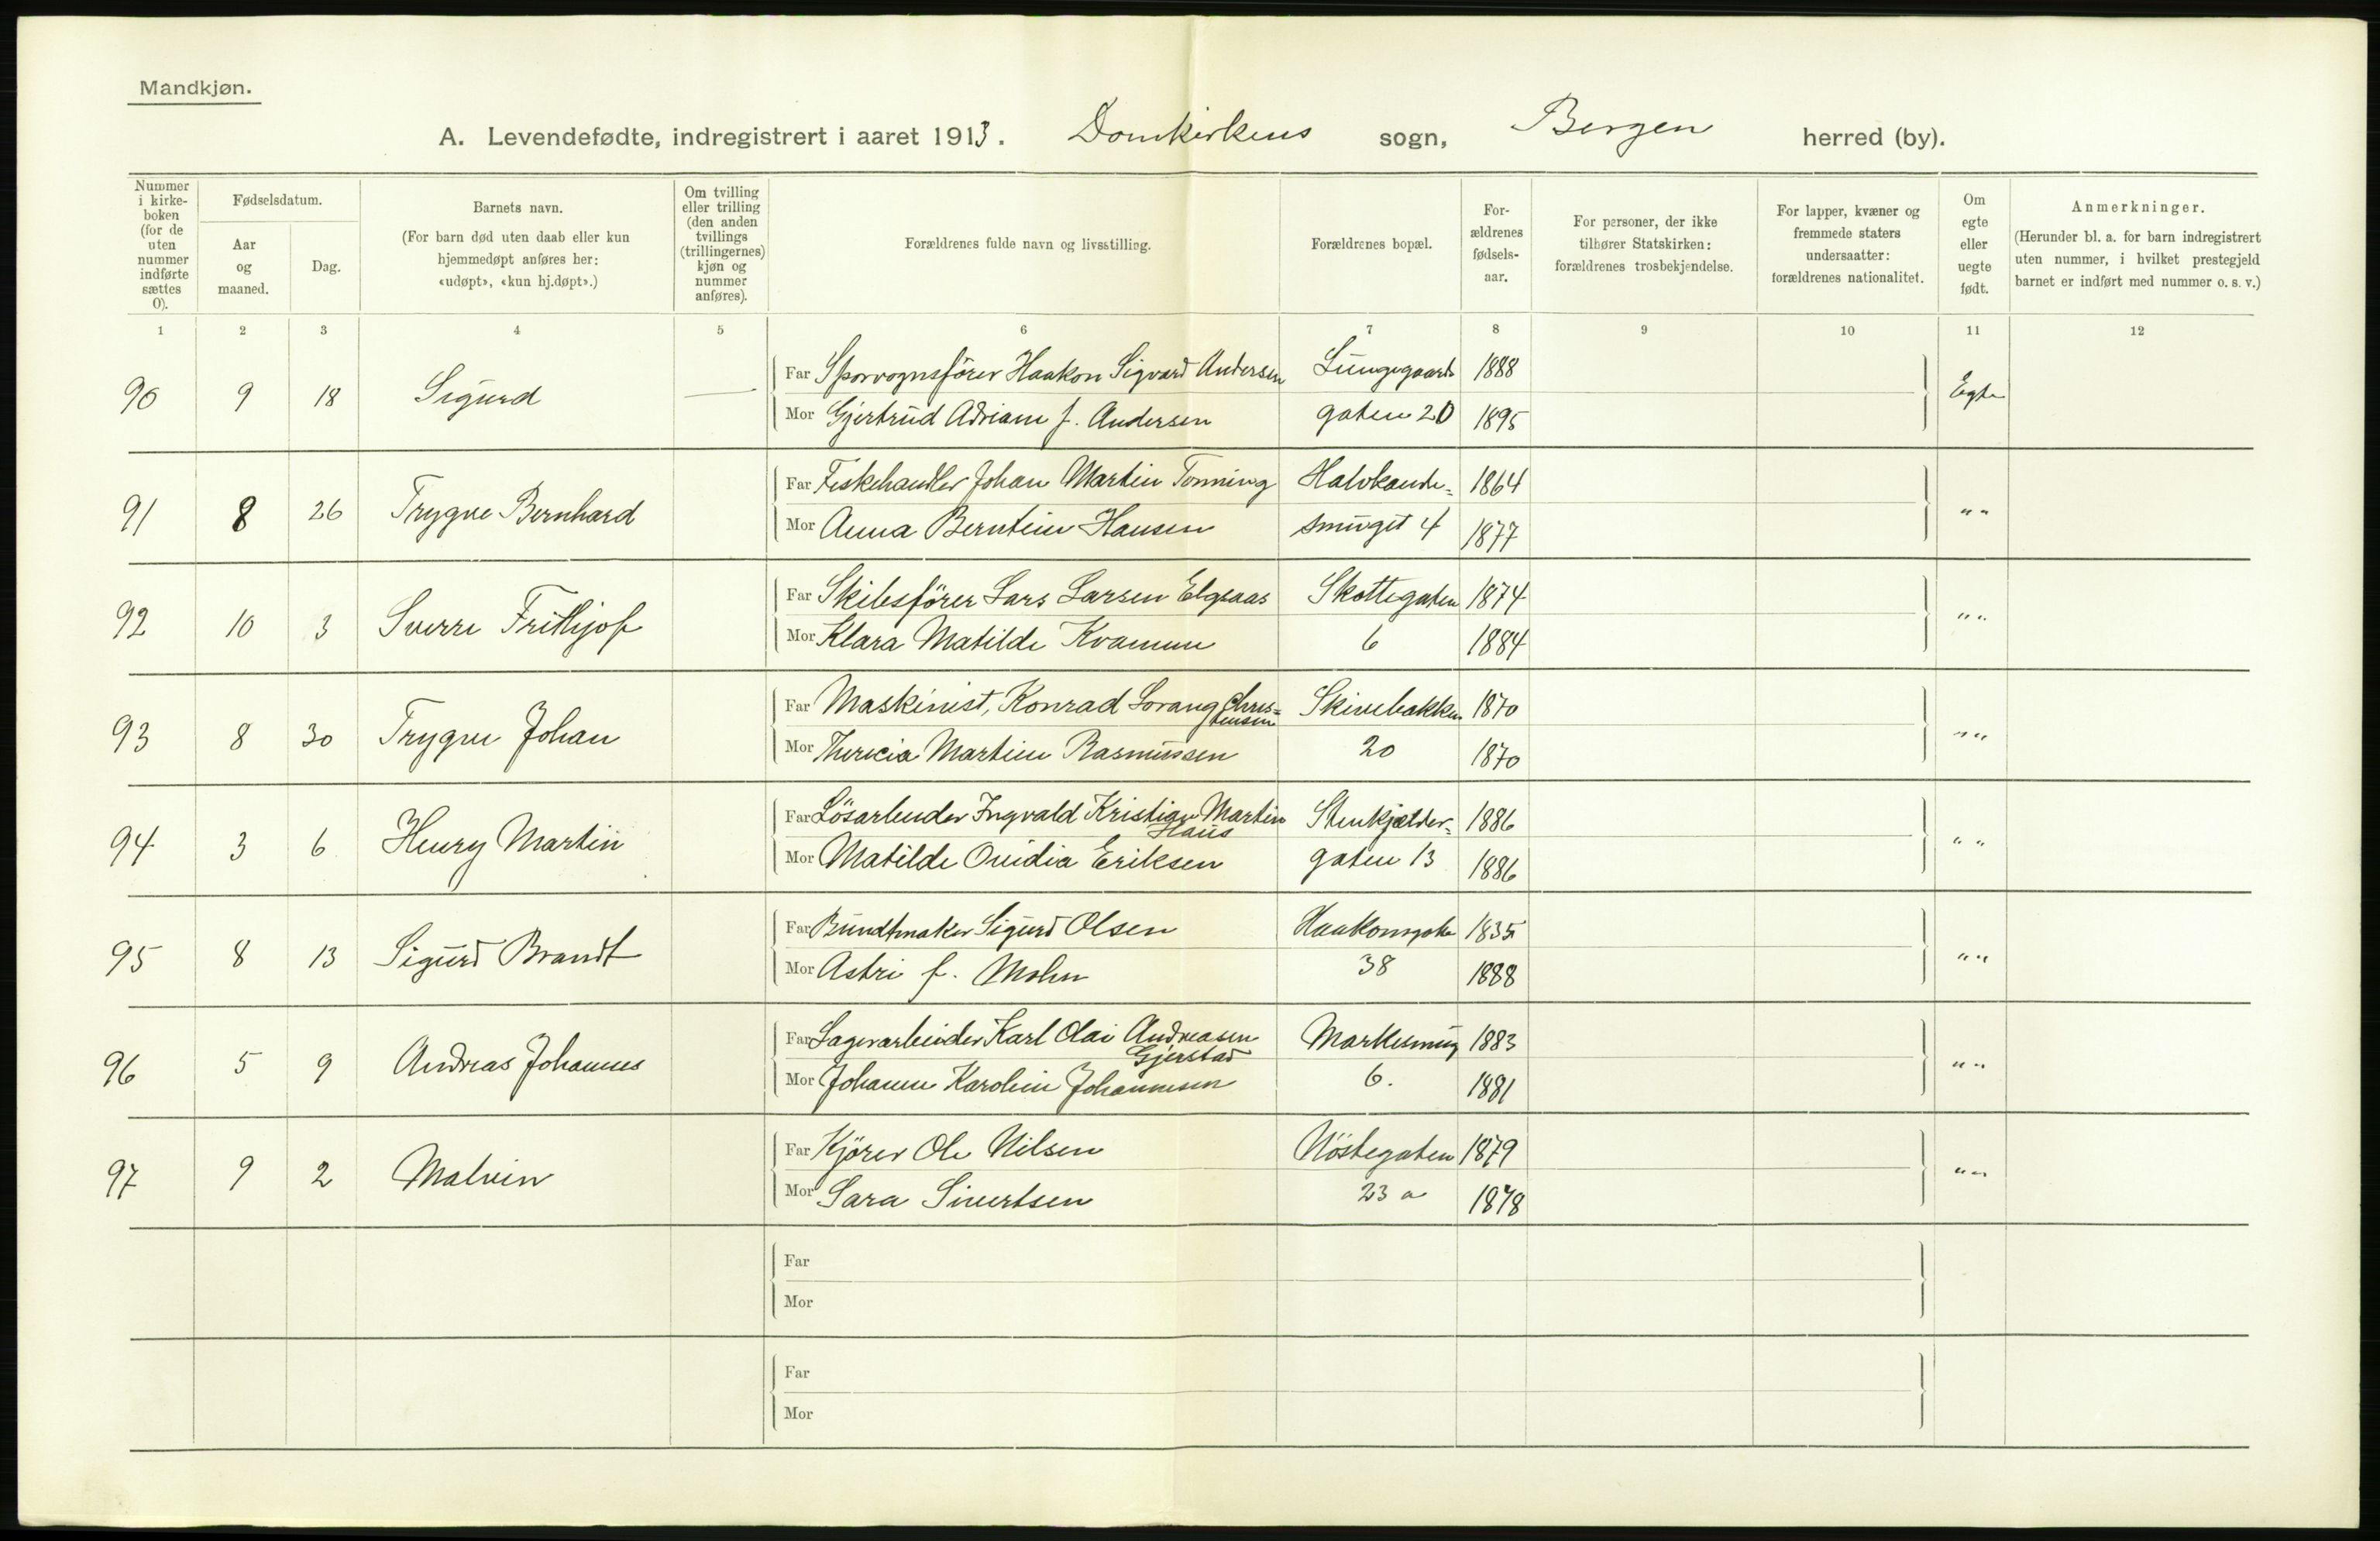 Mandkjøn.
A. Levendefødte, indregistrert i aaret 1913. Domkirkens sogn, Bergen herred (by).
Nummer i kirke-boken (for de uten nummer indførte sættes 0).
Fødselsdatum.
Aar og maaned.
Dag.
Barnets navn.
(For barn død uten daab eller kun hjemmedøpt anføres her: «udøpt», «kun hj.døpt».)
Om tvilling eller trilling (den anden tvillings (trillingernes) kjøn og nummer anføres).
Forældrenes fulde navn og livsstilling.
Forældrenes bopæl.
For-ældrenes fødsels-aar.
For personer, der ikke tilhører Statskirken: forældrenes trosbekjendelse.
For lapper, kvæner og fremmede staters undersaatter: forældrenes nationalitet.
Om egte eller uegte født.
Anmerkninger.
(Herunder bl. a. for barn indregistrert uten nummer, i hvilket prestegjeld barnet er indført med nummer o. s. v.)
1 2 3 4 5 6 7 8 9 10 11 12
90 9 18 Sigurd — Far Sporvognsfører Haakon Sigvard Andersen Lungegaards 1888 Egte
Mor Gjertrud Adriane f. Andersen gaten 20 1895
91 8 26 Trygve Bernhard Far Fiskehandler Johan Martin Tonning Halvkande- 1864 " "
Mor Anna Berntine Hansen smuget 4 1877
92 10 3 Sverre Frithjof Far Skibsfører Lars Larsen Elgsaas Skottegaten 1874 " "
Mor Klara Matilde Kvamme 6 1884
93 8 30 Trygve Johan Far Maskinist, Konrad Lorang Chris=tensen Skivebakken 1870 " "
Mor Thericia Martine Rasmussen 20 1870
94 3 6 Henry Martin Far Løsarbeider Ingvald Kristian Martin Haus Stenkjelder= 1886 " "
Mor Matilde Ovidia Eriksen gaten 13 1886
95 8 13 Sigurd Brandt Far Bundtmaker Sigurd Olsen Haakonsgate 1835 " "
Mor Astri f. Mohn 38 1888
96 5 9 Andreas Johannes Far Lagerarbeider Karl Olai Andreasen Gjerstad Markesmug 1883 " "
Mor Johanne Karoline Johannesen 6. 1881
97 9 2 Malvin Far Kjører Ole Nilsen Nøstegaten 1879 " "
Mor Sara Sivertsen 23 a 1878
Far
Mor
Far
Mor